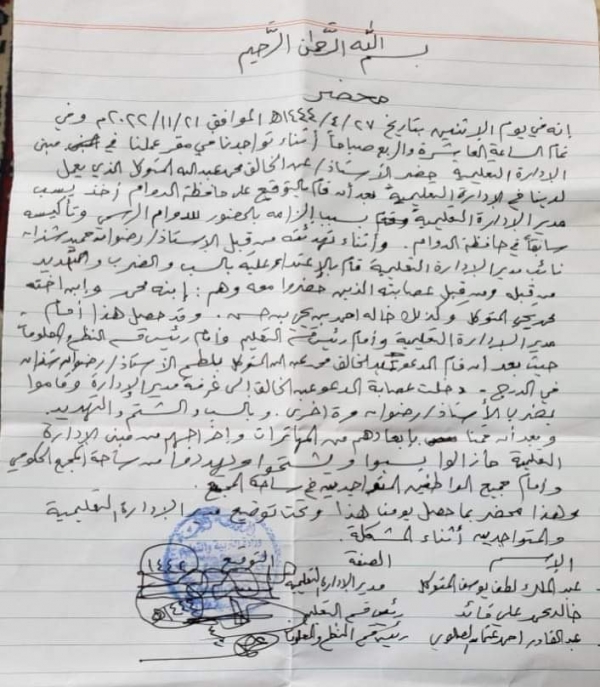 بسم الله الرحمن الرحيم
محضر
إنه في يوم الإثنين بتاريخ ٢٧/٤/١٤٤٤هـ الموافق ٢٠٢٢/١١/٢١م وفي
تمام الساعة العاشرة والربع صباحاً أثناء تواجدنا في مقر عملنا في مبنى
الإدارة التعليمية حضر الأستاذ/ عبدالخالق محمد عبدالله المتوكل الذي يعمل
لدينا في الإدارة التعليمية بعد أن قام بالتوقيع على حافظة الدوام أخذ يسب
مدير الإدارة التعليمية بسبب إلزامه بالحضور للدوام الرسمي
سابقاً في حافظة الدوام. وأثناء تهدئته من قبل الأستاذ/ رضوان حميد شذان
نائب مدير الإدارة التعليمية قام بالإعتداء عليه بالسب والضرب والتهديد
من قبله ومن قبل عصابته الذين حضروا معه وهم: إبنه محمد وابن اخته
محمد يحيى المتوكل وكذلك خاله احمد بن يحيى بن حسن. وقد حصل هذا أمام
مدير الإدارة التعليمية وأمام رئيس قسم التعليم وأمام رئيس قسم النظم والمعلومات
حيث بعد أن قام المدعو عبدالخالق محمد عبدالله المتوكل بلطم الأستاذ/ رضوان شذان
في الدرج - دخلت عصابة المدعو عبدالخالق إلى غرفة مدير الإدارة وقاموا
بضرب الأستاذ/ رضوان مرة اخرى. وبالسب والشتم والتهديد.
وبعد أن قمنا بإبعادهم من المهاترات وإخراجهم من مبنى الإدارة
التعليمية مازالوا يسبوا ويشتموا ويهددوا من ساحة المجمع الحكومي
وأمام جميع المواطنين المتواجدين في ساحة المجمع.
وهذا محضر بما حصل يومنا هذا وتحت توقيع مدير الإدارة التعليمية
والمتواجدين أثناء المشكلة.
الإسم الصفة التوقيع
عبدالملك لطف يوسف المتوكل مدير الإدارة التعليمية
خالد محمد علي قائد رئيس قسم التعليم
عبدالقادر احمد رئيس قسم النظم والمعلومات